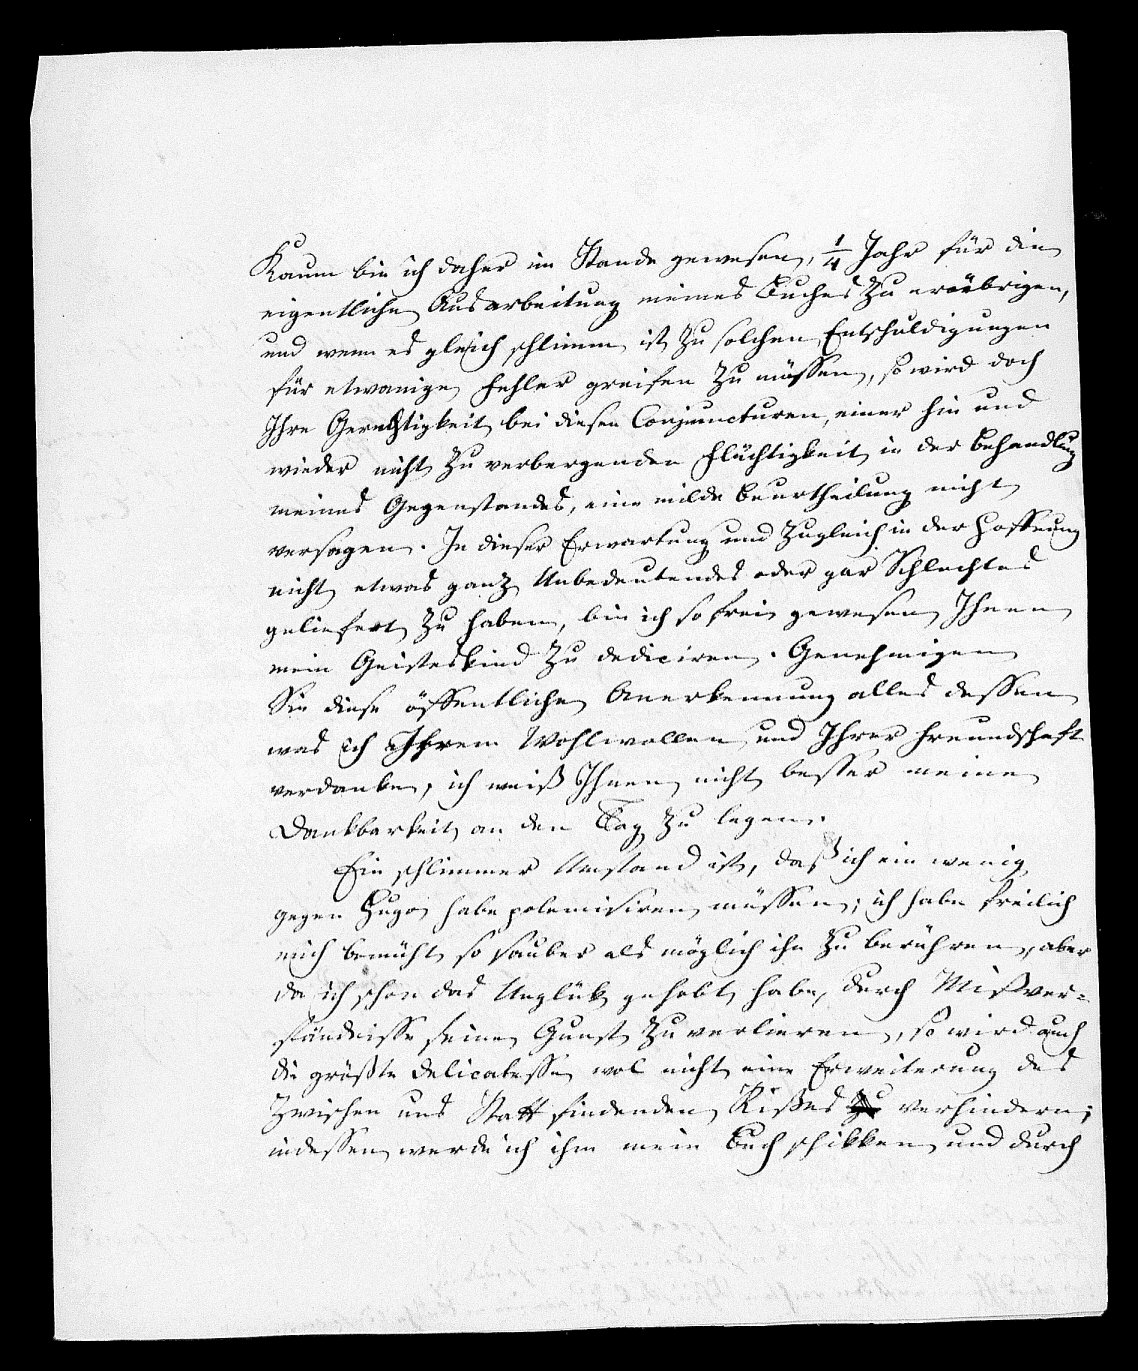 Kaum bin ich daher im Stande gewesen, 1/4 Jahr für die
eigentliche Ausarbeitung meines Buches zu erübrigen,
und wenn es gleich schlimm ist zu solchen Entschuldigungen
für etwanige Fehler greifen zu müssen, so wird doch
Ihre Gerechtigkeit bei diesen Conjuncturen, einer hin und
wieder nicht zu verbergenden Flüchtigkeit in der Behandlung
meines Gegenstandes, eine milde Beurtheilung nicht
versagen. In dieser Erwartung und zugleich in der Hoffnung
nicht etwas ganz Unbedeutendes oder gar Schlechtes
geliefert zu haben, bin ich so frei gewesen Ihnen
mein Geisteskind zu dediciren. Genehmigen
Sie diese öffentliche Anerkennung alles dessen
was ich Ihrem Wohlwollen und Ihrer Freundschaft
verdanke, ich weiß Ihnen nicht besser meine
Dankbarkeit an den Tag zu legen.
Ein schlimmer Umstand ist, daß ich ein wenig
gegen Hugo habe polemisiren müssen; ich habe freilich
mich bemüht so sauber als möglich ihn zu berühren, aber
da ich schon das Unglük gehabt habe, durch Mißver-
ständnisse seine Gunst zu verlieren, so wird auch
die größte Delicatesse wol nicht eine Erweiterung des
zwischen uns Statt findenden Rißes verhindern;
indessen werde ich ihm mein Buch schikken und durch